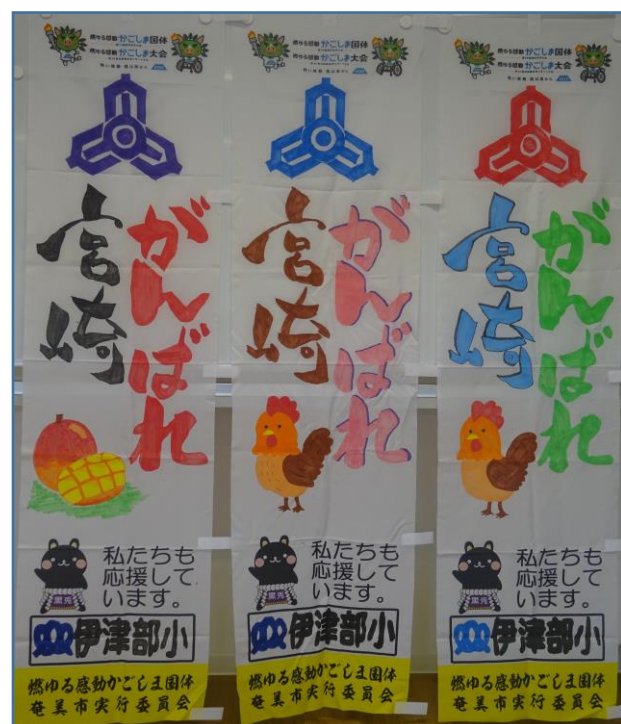 燃ゆる感動 かごしま国体
燃ゆる感動 かごしま大会
熱い鼓動 風は南から
がんばれ
宮崎
私たちも
応援して
います。
伊津部小
燃ゆる感動かごしま国体
奄美市実行委員会
燃ゆる感動 かごしま国体
燃ゆる感動 かごしま大会
熱い鼓動 風は南から
がんばれ
宮崎
私たちも
応援して
います。
伊津部小
燃ゆる感動かごしま国体
奄美市実行委員会
燃ゆる感動 かごしま国体
燃ゆる感動 かごしま大会
熱い鼓動 風は南から
がんばれ
宮崎
私たちも
応援して
います。
伊津部小
燃ゆる感動かごしま国体
奄美市実行委員会